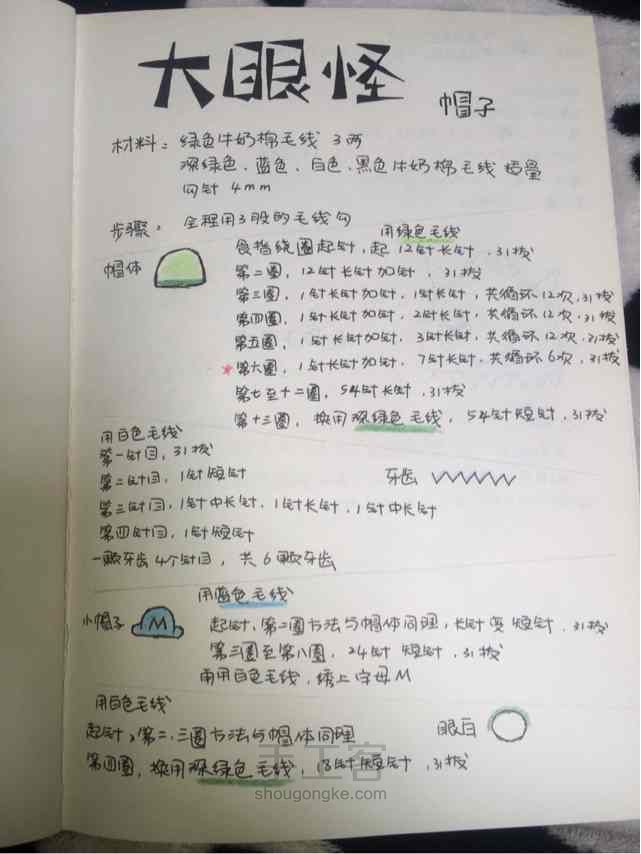 大眼怪
帽子
材料：绿色牛奶棉毛线 3两
深绿色、蓝色、白色、黑色牛奶棉毛线 适量
勾针 4mm
步骤：全程用3股的毛线勾
用绿色毛线
帽体
食指绕圈起针，起12针长针，引拔
第二圈，12针长针加针，引拔
第三圈，1针长针加针，1针长针，共循环12次，引拔
第四圈，1针长针加针，2针长针，共循环12次，引拔
第五圈，1针长针加针，3针长针，共循环12次，引拔
*第六圈，1针长针加针，7针长针，共循环6次，引拔
第七至十二圈，54针长针，引拔
第十三圈，换用深绿色毛线，54针短针，引拔
用白色毛线
第一针目，引拔
第二针目，1针短针
牙齿
第三针目，1针中长针，1针长针，1针中长针
第四针目，1针短针
一颗牙齿4个针目，共6颗牙齿
用蓝色毛线
小帽子
M
起针、第二圈方法与帽体同理，长针变短针，引拔
第三圈至第八圈，24针短针，引拔
再用白色毛线，绣上字母M
用白色毛线
起针、第二、三圈方法与帽体同理
眼白
第四圈，换用深绿色毛线，18针短针，引拔
手工客
shougongke.com